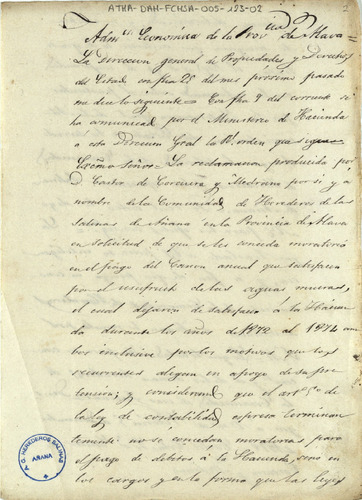 ATHA-DAH-FCHSA-005-123-02
2
Admon. Economica de la Provcia de Alava=
La Direccion general de Propiedades y Derechos
del Estado con fha 25 del mes proximo pasado
me dice lo siguiente= Con fha 9 del corriente se
ha comunicado por el Ministerio de Hacienda
a esta Direccion Gral la Rl orden que sigue
Escmo Señor= La reclamacion producida por
D. Castor de Corcuera y Medrano por si, y a
nombre de la Comunidad de Herederos de las
Salinas de Añana en la Provincia de Alava
en solicitud de que se les conceda moratoria
en el pago del Canon anual que satisfacen
por el usufructo de las aguas mueras,
el cual dejaron de satisfacer á la Hacien
da durante los años de 1872 al 1874 am
bos inclusive por los motivos que los
recurrentes alegan en apoyo de su pre
tension; y considerando que el artº 5º de
la ley de contabilidad espresa terminan
temente no se concedan moratorias para
el pago de debitos á la Hacienda, sino en
los cargos y en la forma que las leyes
P. G. HEREDEROS SALINAS
AÑANA